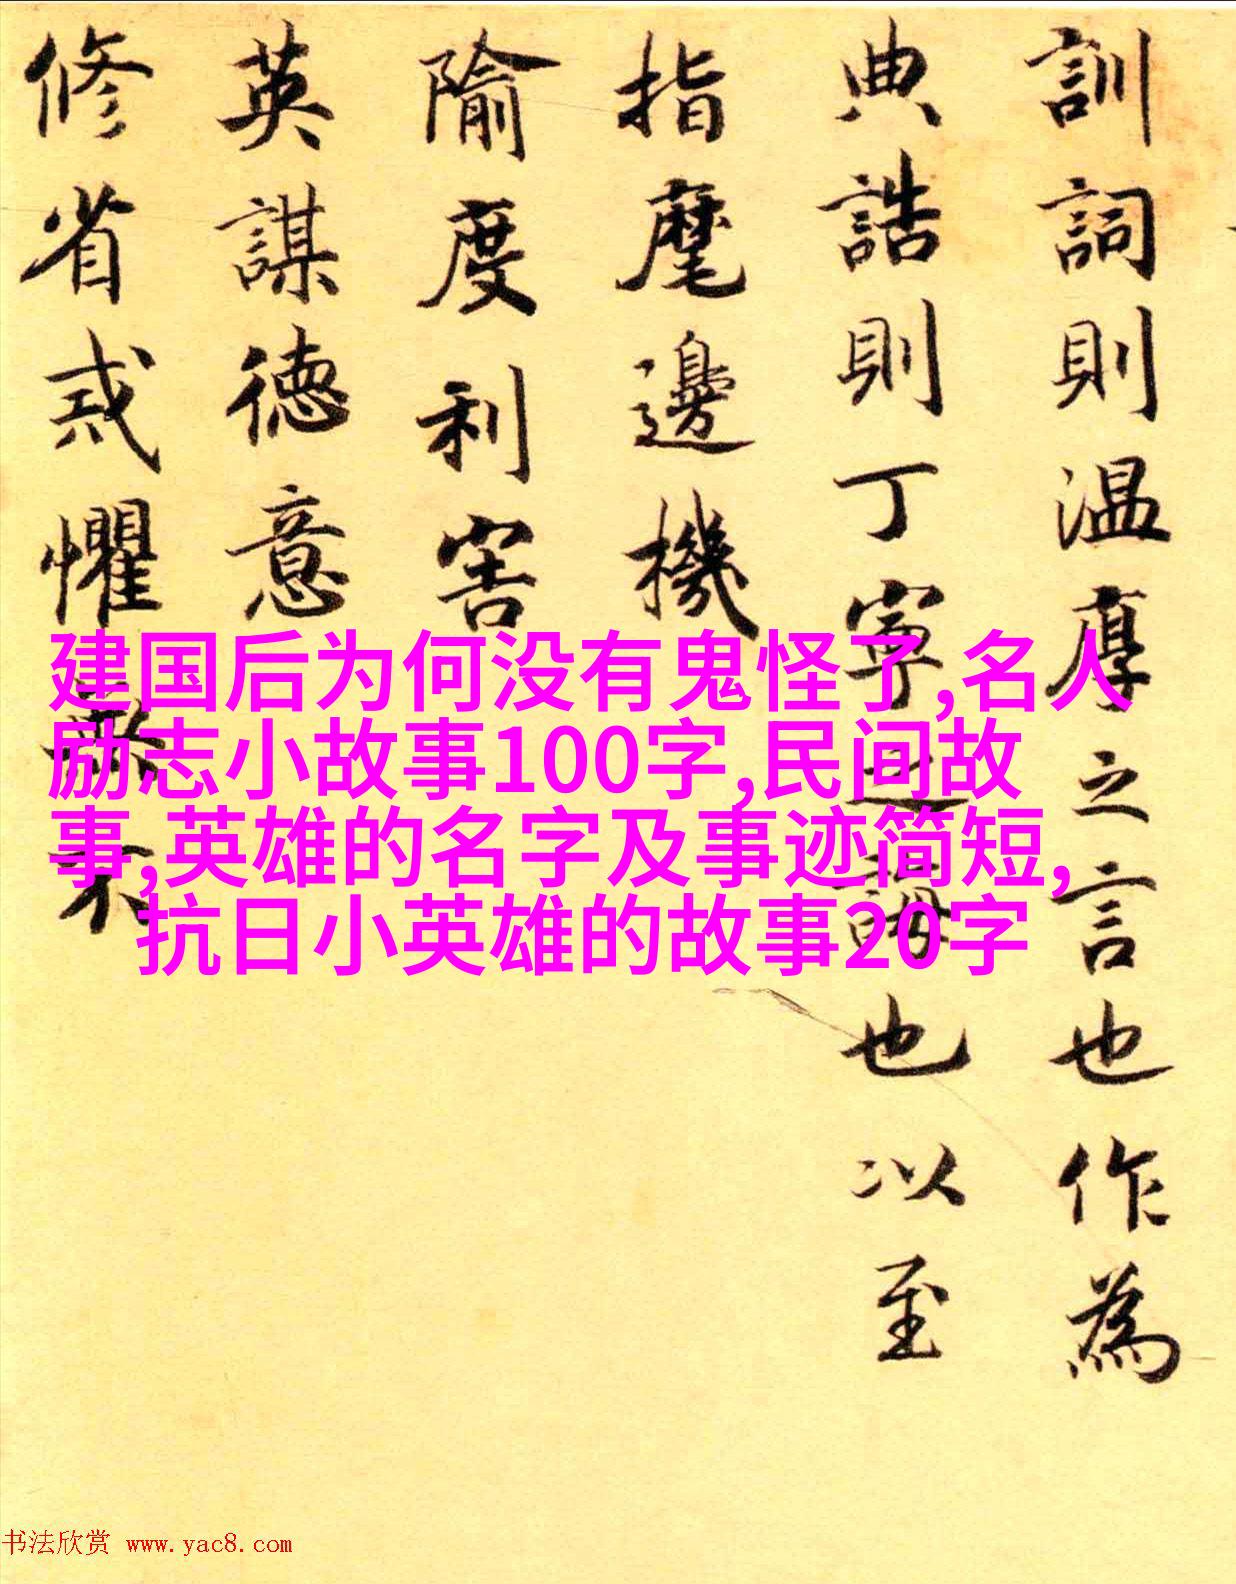 訓詞則温厚之言也作為
典誥則丁寧之誨也以至
指麾邊機
隃度利害
英謀德意
修省戒懼不
建国后为何没有鬼怪了,名人
励志小故事100字,民间故
事,英雄的名字及事迹简短,
抗日小英雄的故事20字
书法欣赏 www.yac8.com